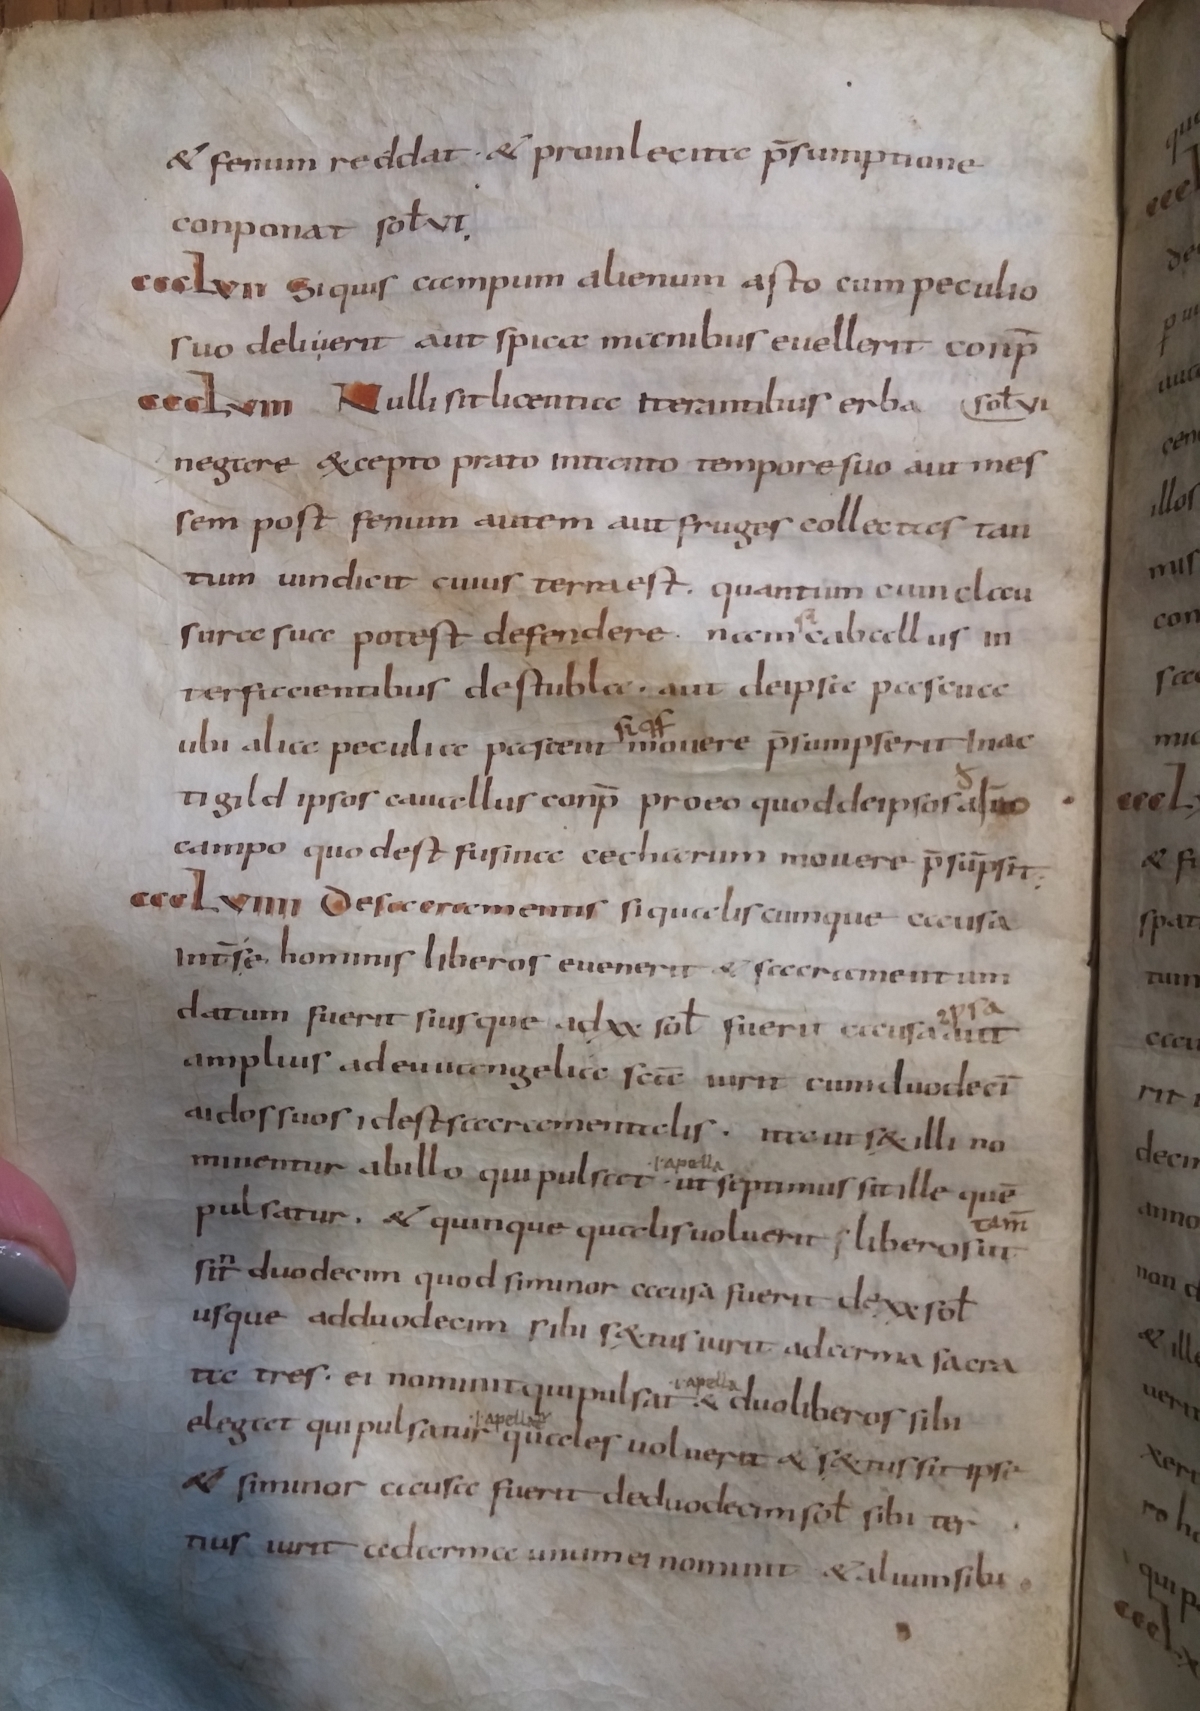 & fenum reddat · & pro inlecita p̄sumptione
conponat sol̄ vi.
cccLvii Si quis campum alienum asto cum peculio
suo delivierit aut spica manibus evellerit conp̄
cccLviii Nulli sit licentia iterantibus erba sol̄ vi
negare excepto prato intacto tempore suo aut mes
sem post fenum autem aut fruges collectas tan
tum vindicit cuius terra est. quantum cum clau
sura sua potest defendere. nam si caballus in
terfacientibus de stubla · aut de ipsa pascua
ubi alia peculia pascent si qs movere p̄sumpserit in ac
tigild ipsos cavallus conp̄ pro eo quod de ipsos
campo quod est fusina caballorum movere p̄sūpsit.
cccLviiii De sacramentis si qualiscumque causa
int̄ se hominis liberos evenerit & sacramentum
datum fuerit si usque ad xx sol̄ fuerit causa ipsa aut
amplius ad evangelia sc̄a iurit cum duodeci̅
aidos suos id est sacramentalis. ita ut s& illi no
minentur ab illo qui pulsat · apella ut septimus sit ille quē
pulsatur. & quinque qualis voluerit liberos tam̄ ut
sint duodecim quod si minor causa fuerit de xx sol̄
usque ad duodecim sibi s&tus iurit ad arma sacra
ta tres. ei nominit qui pulsat · apella & duo liberos sibi
elegat qui pulsatur · apellatr quales voluerit & s&tus sit ipse
& si minor causa fuerit de duodecim sol̄ sibi ter
tius iurit ad arma unum ei nominit & alium sibi